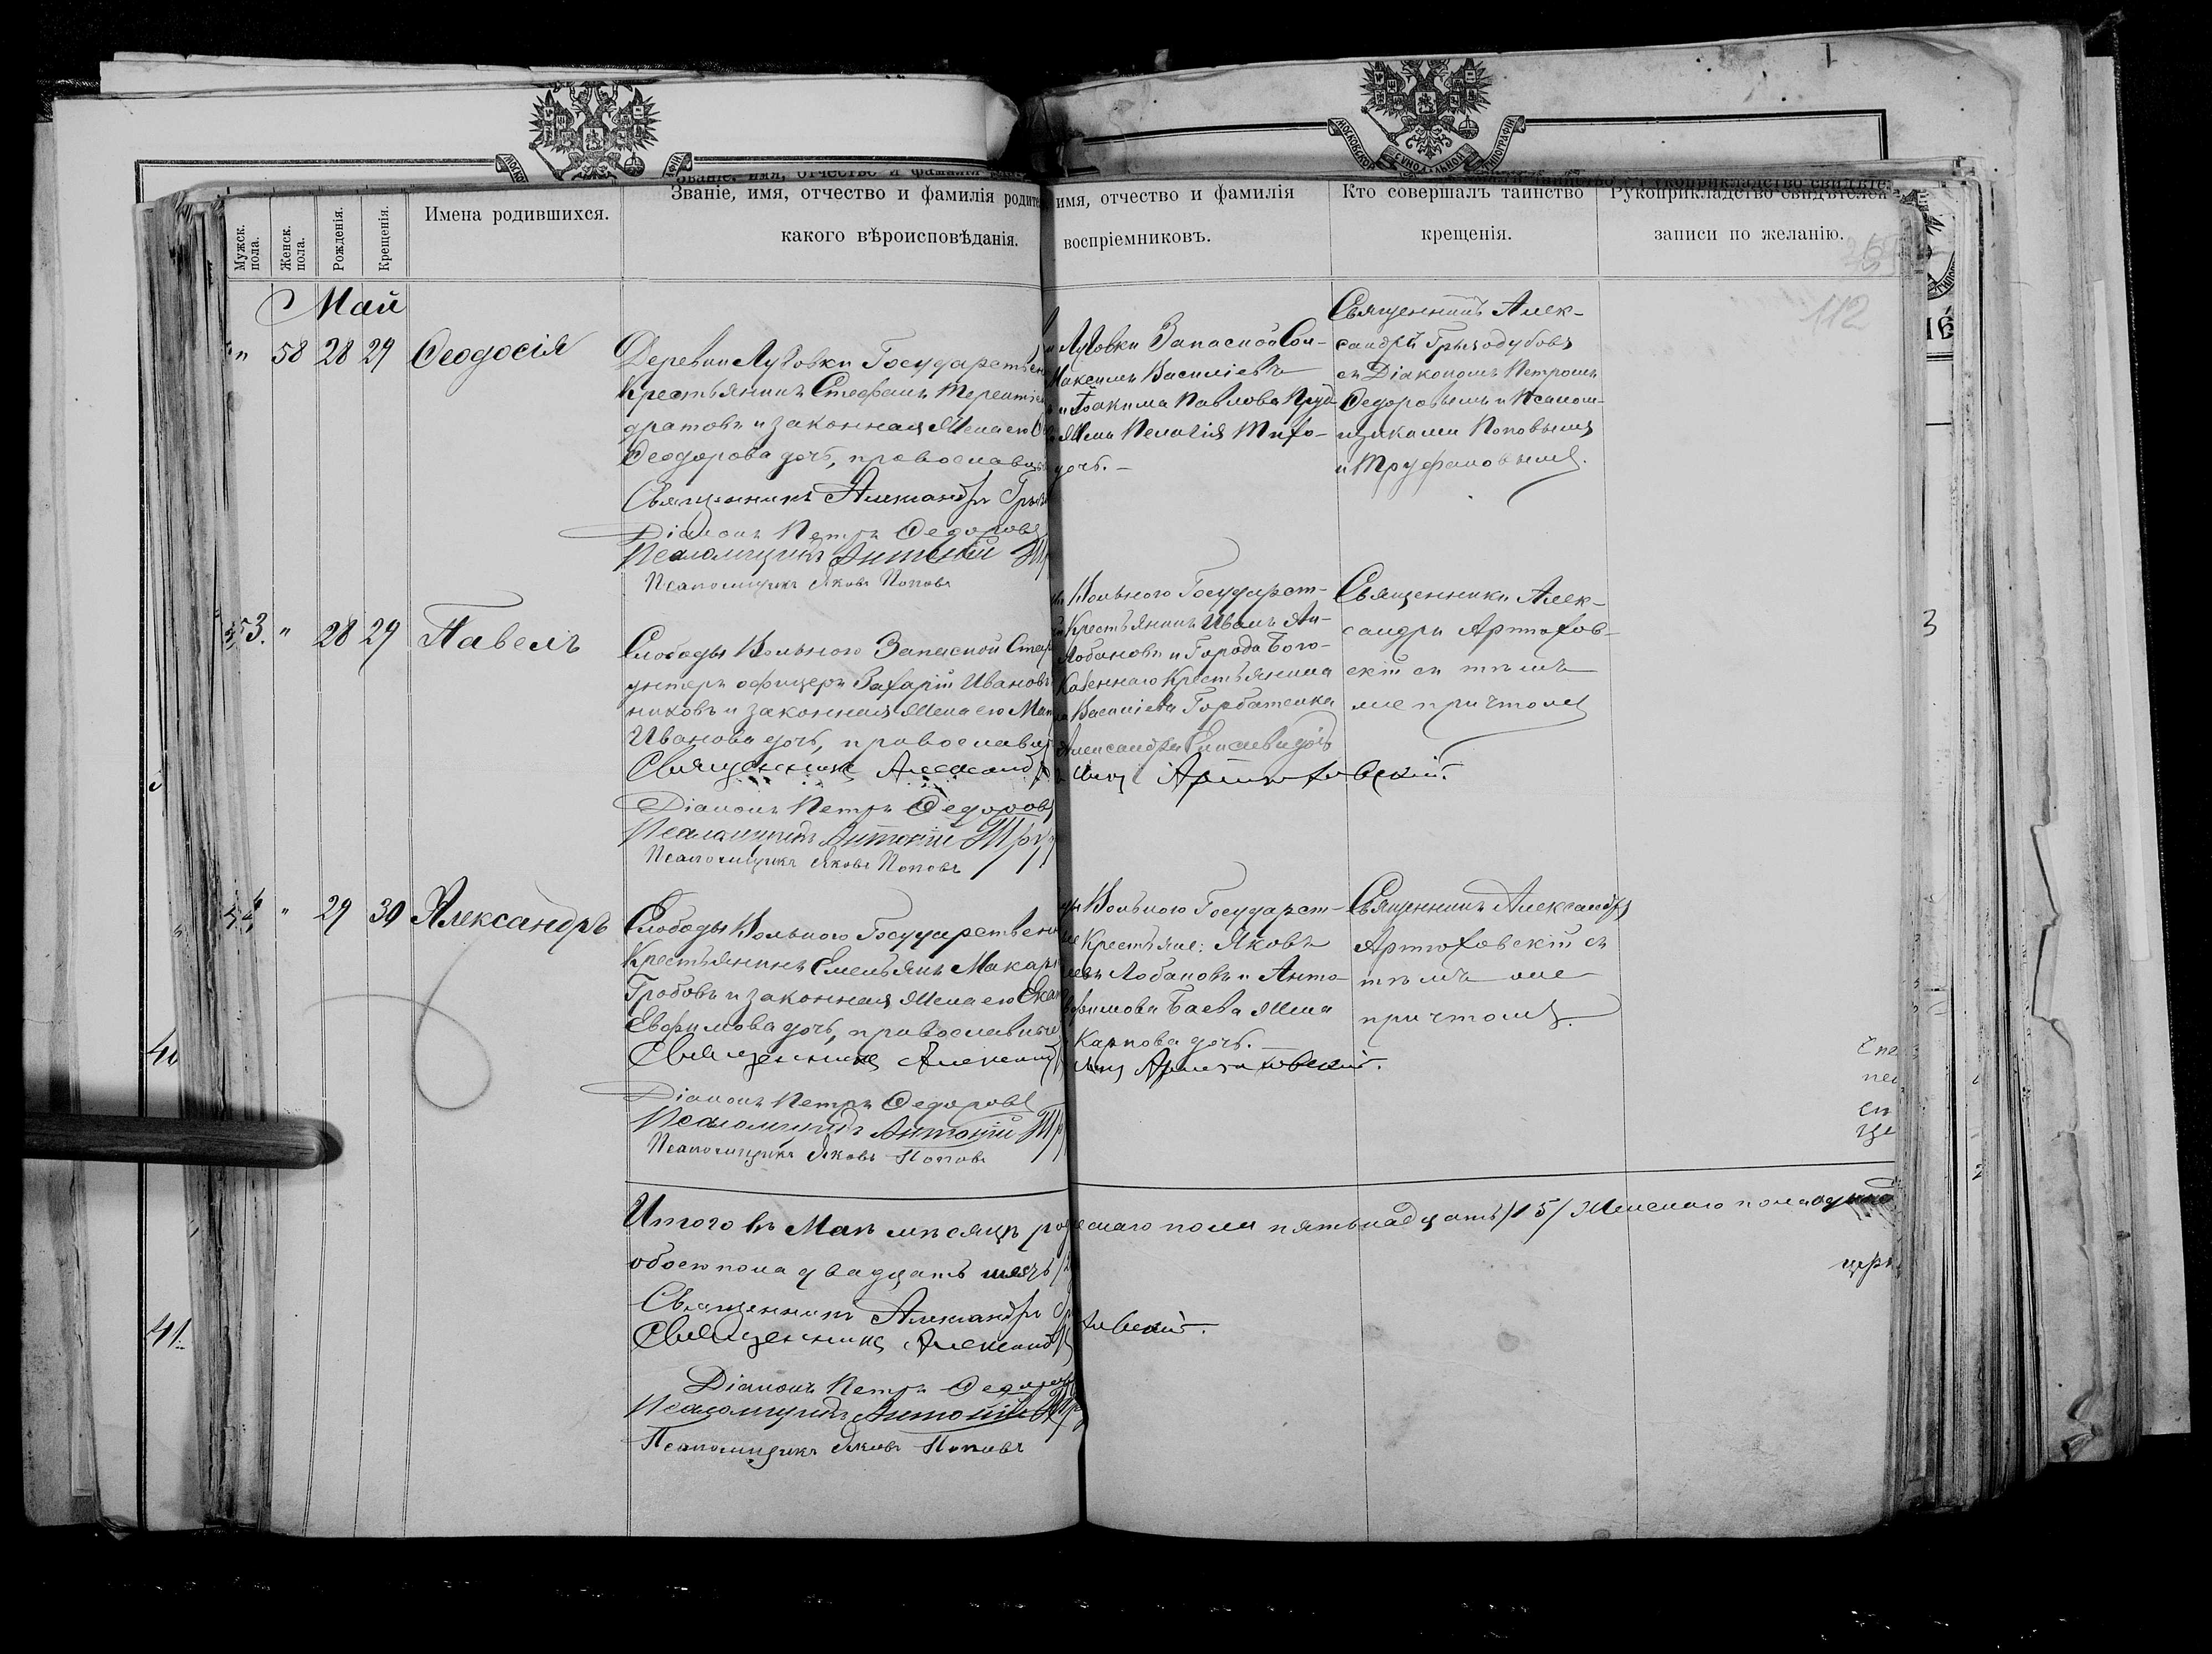 МОСКОВСКОЙ СѴНОДАЛЬНОЙ ТИПОГРАФІИ
Мужск. пола.
Женск. пола.
Рожденія.
Крещенія.
Имена родившихся.
Званіе, имя, отчество и фамилія родите
какого вѣроисповѣданія.
имя, отчество и фамилія
воспріемниковъ.
Кто совершалъ таинство
крещенія.
Рукоприкладство свидѣтелей
записи по желанію.
112
Май
" 58 28 29 Ѳеодосія
Деревни Луговки Государствен
Крестьянинъ Стефанъ Терентіе
дратовъ и законная жена его
Ѳеодорова дочь, православны
Священникъ Александръ Гры
Діаконъ Петръ Ѳедоровъ
Псаломщикъ Антоній Тр
Псаломщикъ Яковъ Поповъ
Луговки Запасной Сол-
Максимъ Васильевъ
и Іоакима Павлова
жена Пелагія Тихо-
дочь.-
Священникъ Алек-
сандръ Грызодубовъ
съ Діакономъ Петромъ
Ѳедоровымъ и Псалом-
щиками Поповымъ
и Труфановымъ.
53. " 28 29 Павелъ
Слободы Вольного Запасной
унтеръ офицеръ Захарій Ивановъ
никовъ и законная жена его
Иванова дочь, православны
Священникъ Александр
Діаконъ Петръ Ѳедоровъ
Псаломщикъ Антоній Тру
Псаломщикъ Яковъ Поповъ
Вольного Государст-
Крестьянинъ Иванъ Ан-
Лобановъ и Города Бого-
Казеннаго Крестьянина
Васильева Горбатенка
Александра дочь
Артюховскій.
Священникъ Алек-
сандръ Артюхов-
скій съ тѣмъ
же причтомъ
54 " 29 30 Александръ
Слободы Вольного Государствен
Крестьянинъ Емельянъ Макар
Гробовъ и законная жена его
Евфимова дочь, православны
Священникъ Александ
Діаконъ Петръ Ѳедоровъ
Псаломщикъ Антоній Тр
Псаломщикъ Яковъ Поповъ
Вольного Государст-
Крестьяне: Яковъ
Лобановъ и Анто-
Баева жена
Карпова дочь.-
Артюховскій.
Священникъ Александръ
Артюховскій съ
тѣмъ же
причтомъ.
Итого въ Маѣ мѣсяцѣ ро
ескаго пола пятьнадцать /15/ Женскаго пола
обоего пола двадцать
Священникъ Александръ
Священникъ Александ
ховскій.
Діаконъ Петръ Ѳедоровъ
Псаломщикъ Антоній Тр
Псаломщикъ Яковъ Поповъ
41.
3